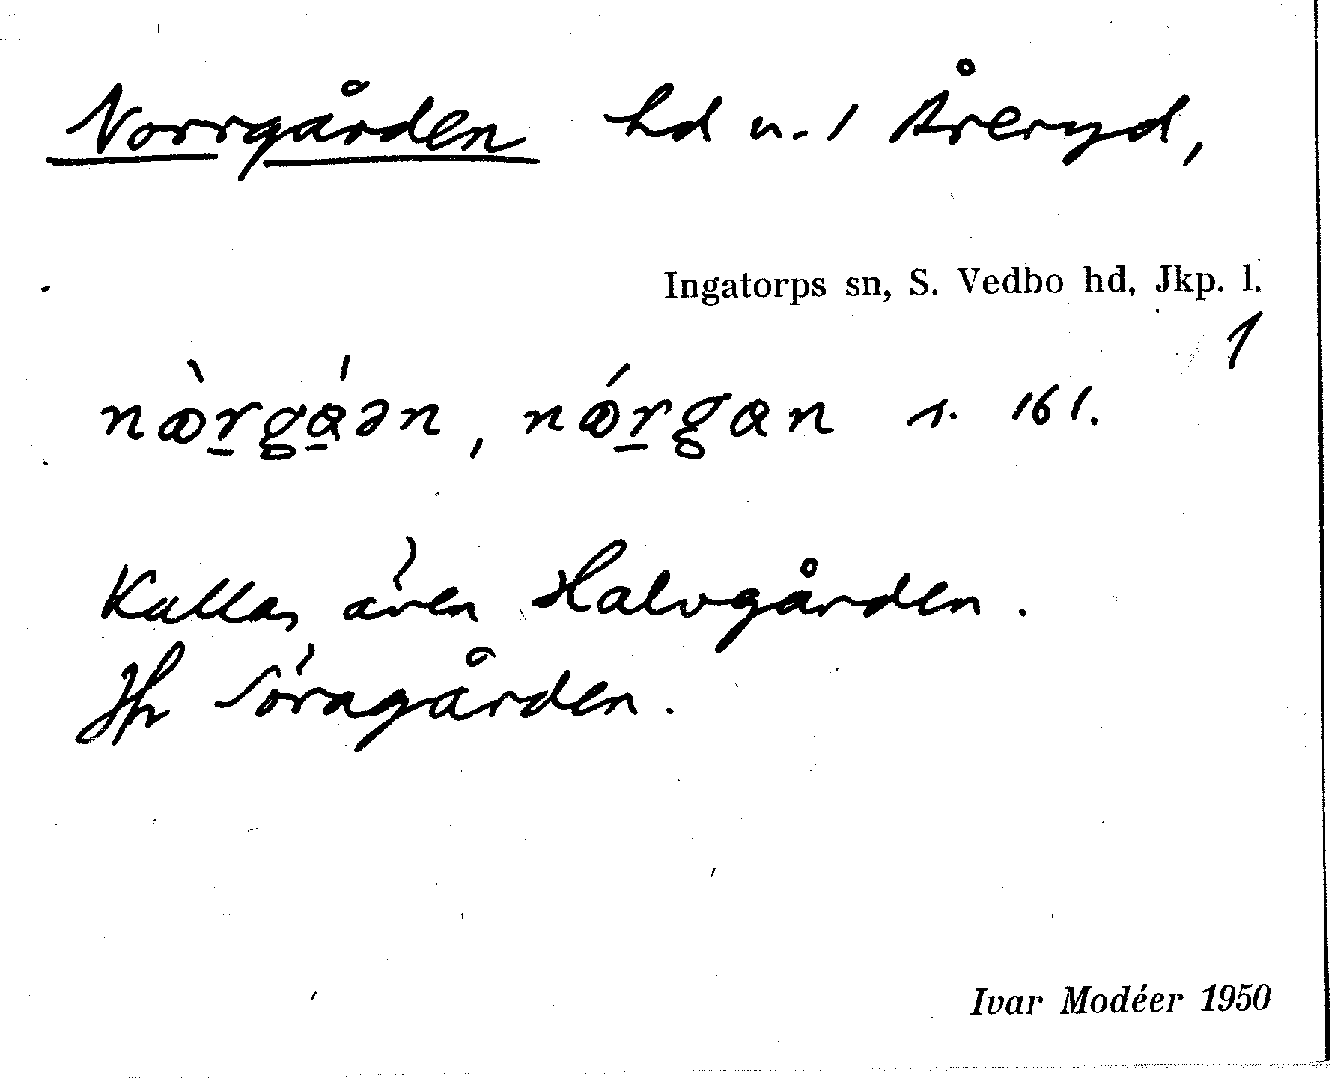 Norrgården hd n. 1 Åreryd,
Ingatorps sn, S. Vedbo hd, Jkp. l.
1
s. 161.
Kallas även Halvgården.
Jfr Söragården.
Ivar Modéer 1950